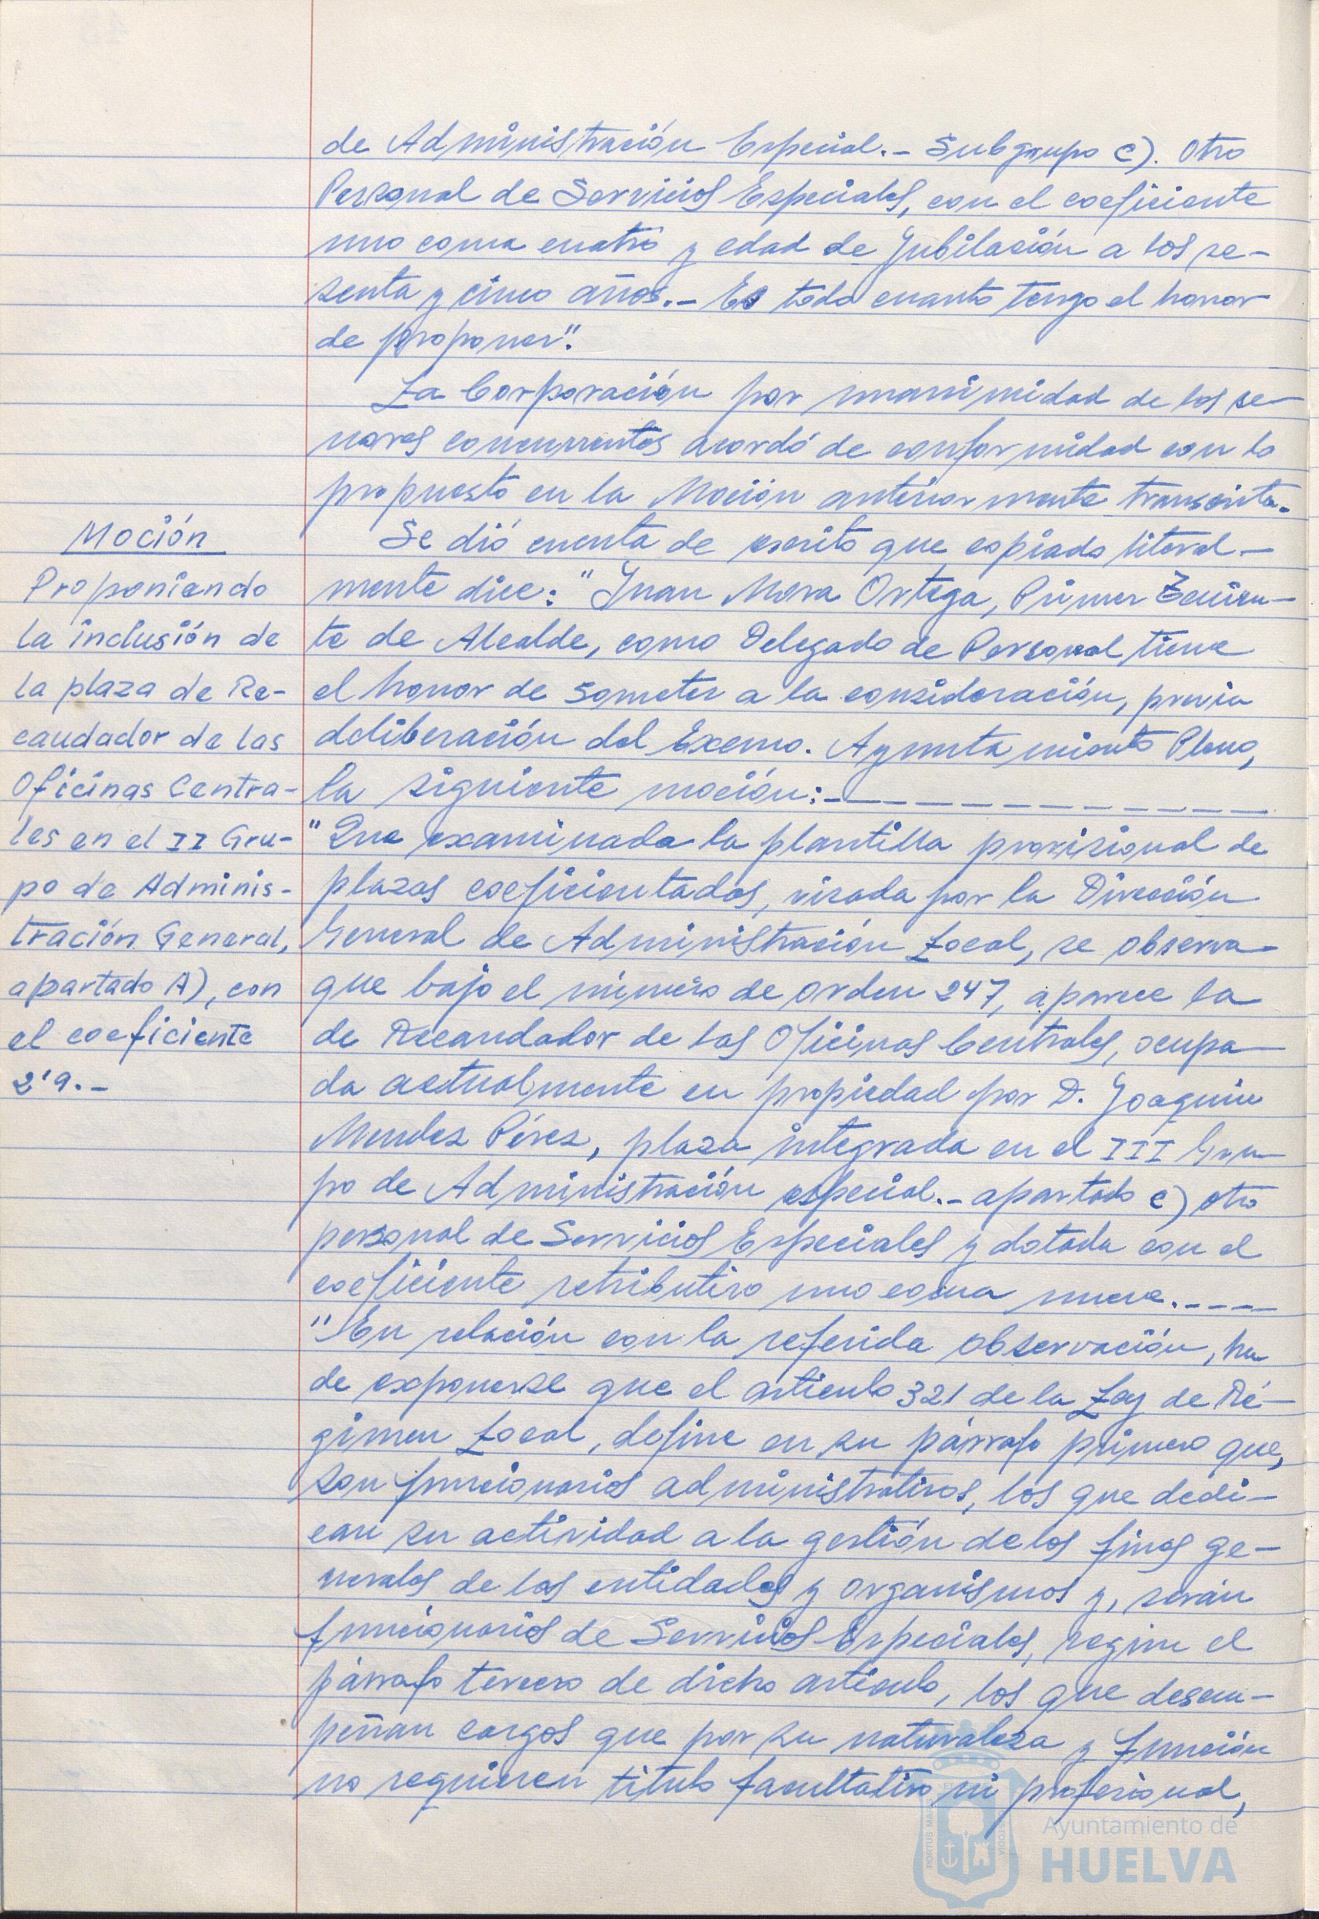 de Administración Especial.- Subgrupo C). Otro
Personal de Servicios Especiales, con el coeficiente
uno coma cuatro y edad de Jubilación a los se-
senta y cinco años.- Es todo cuanto tengo el honor
de proponer".
La Corporación por unanimidad de los se-
ñores concurrentes acordó de conformidad con lo
propuesto en la Moción anteriormente transcrita.
Moción
Proponiendo
la inclusión de
la plaza de Re-
caudador de las
Oficinas Centra-
les en el II Gru-
po de Adminis-
tración General,
apartado A), con
el coeficiente
2'9.-
Se dió cuenta de escrito que copiado literal-
mente dice: "Juan Mora Ortega, Primer Tenien-
te de Alcalde, como Delegado de Personal tiene
el honor de someter a la consideración, previa
deliberación del Excmo. Ayuntamiento Pleno,
la siguiente moción:-
"Que examinada la plantilla provisional de
plazas coeficientadas, visada por la Dirección
General de Administración Local, se observa
que bajo el número de orden 247, aparece la
de Recaudador de las Oficinas Centrales, ocupa-
da actualmente en propiedad por D. Joaquin
Mendez Pérez, plaza integrada en el III Gru-
po de Administración especial.- apartado C) otro
personal de Servicios Especiales y dotada con el
coeficiente retributivo uno coma nueve.----
"En relación con la referida observación, ha
de exponerse que el articulo 321 de la Ley de Ré-
gimen Local, define en su párrafo primero que,
son funcionarios administrativos, los que dedi-
can su actividad a la gestión de los fines ge-
nerales de las entidades y organismos y, serán
funcionarios de Servicios Especiales, según el
párrafo tercero de dicho articulo, los que desem-
peñan cargos que por su naturaleza y función
no requieren titulo facultativo ni profesional,
Ayuntamiento de
HUELVA